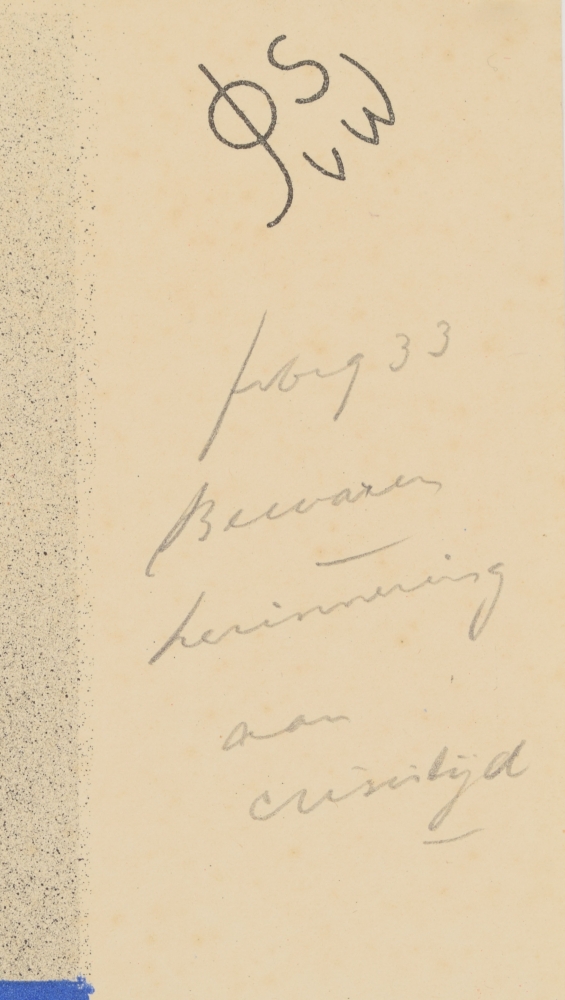 S
vW
33
Bewaren
herinnering
aan
crisistijd